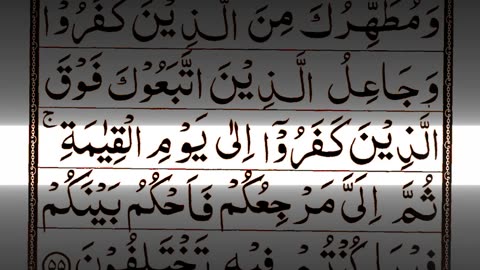 وَمُطَهِّرُكَ مِنَ الَّذِيْنَ كَفَرُوْا
وَجَاعِلُ الَّذِيْنَ اتَّبَعُوْكَ فَوْقَ
الَّذِيْنَ كَفَرُوْۤا اِلٰى يَوْمِ الْقِيٰمَةِ ۚ
ثُمَّ اِلَيَّ مَرْجِعُكُمْ فَاَحْكُمُ بَيْنَكُمْ
فِيْمَا كُنْتُمْ فِيْهِ تَخْتَلِفُوْنَ ﴿٥٥﴾